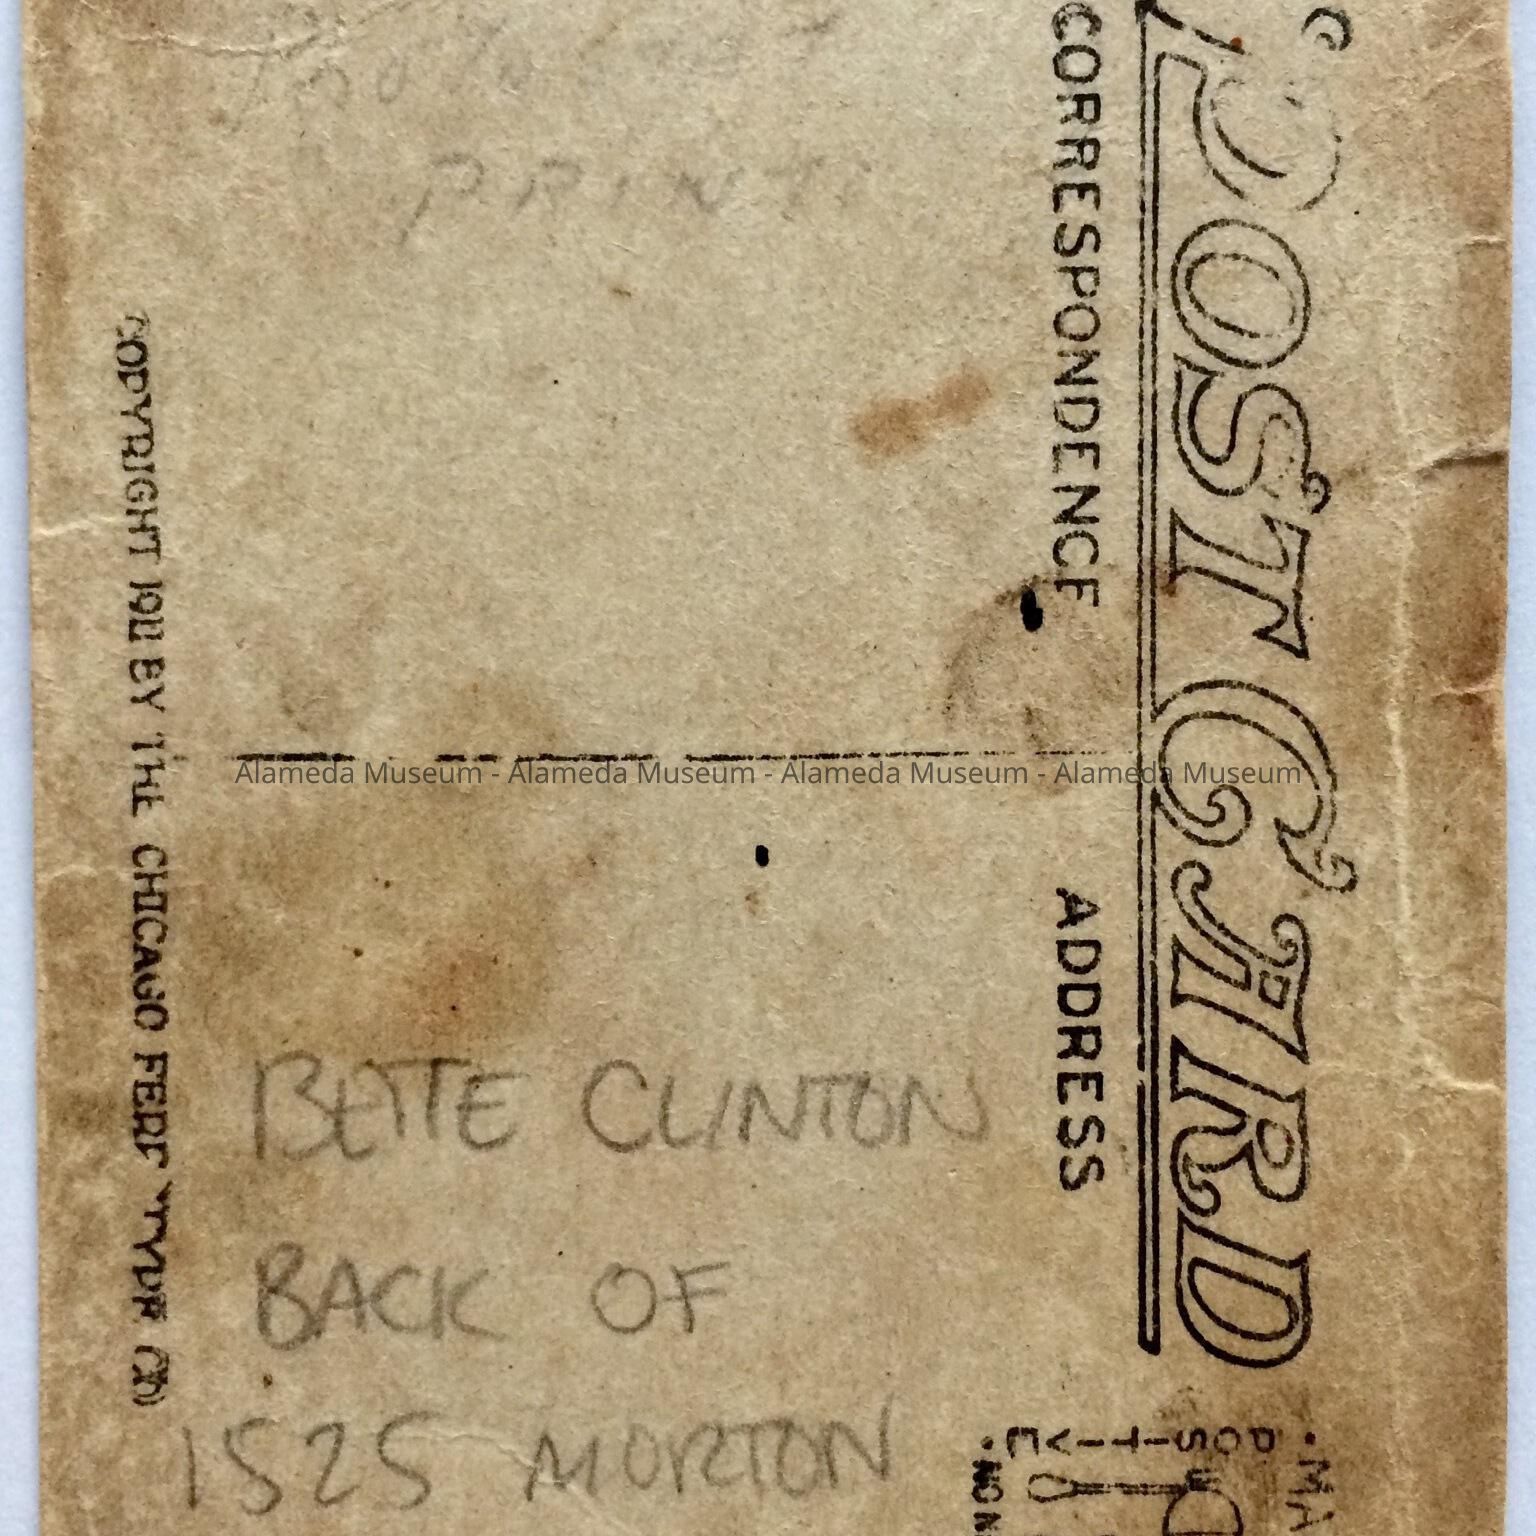 POST CARD
CORRESPONDENCE
ADDRESS
COPYRIGHT 1911 BY THE CHICAGO FERROTYPE CO
PRINT
BETTE CLINTON
BACK OF
1525 MORTON
POSITIVE
Alameda Museum - Alameda Museum - Alameda Museum - Alameda Museum